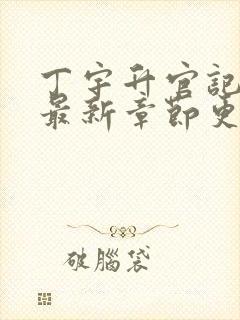 丁宇升官記
最新章節更
破腦袋